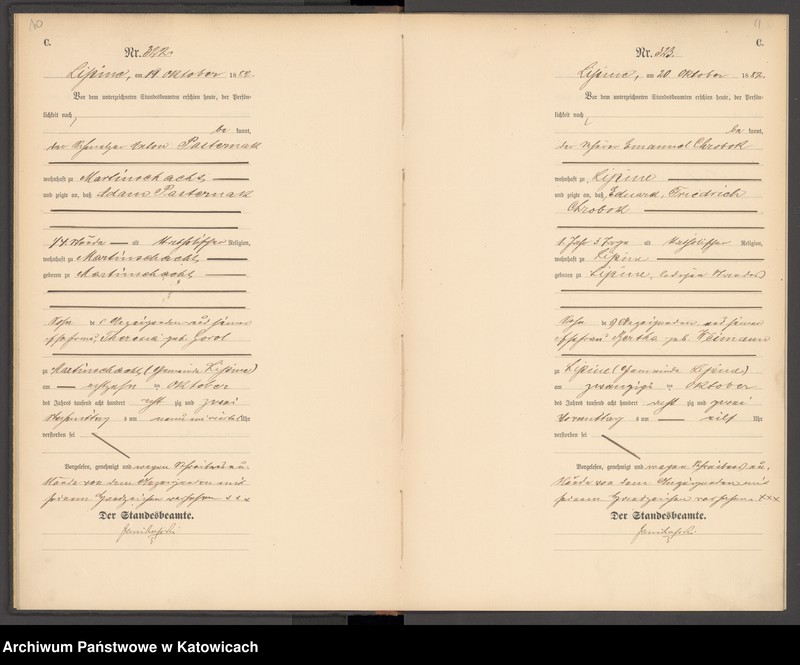 10
C.
Nr. 322.
Lipine, am 19 Oktober 1882.
Vor dem unterzeichneten Standesbeamten erschien heute, der Persön-
lichkeit nach
be kannt,
der Schmelzer Anton Pasternak
wohnhaft zu Martinschacht
und zeigte an, daß Adam Pasternak
alt Religion,
wohnhaft zu Martinschacht
geboren zu Martinschacht
Sohn de s Anzeigenden und seiner
Ehefrau, geb.
zu Martinschacht (Gemeinde Lipine)
am achtzehn ten Oktober
des Jahres tausend acht hundert acht zig und zwei
Nachmittag s um Uhr
verstorben sei
Vorgelesen, genehmigt und wegen Schreibens un-
kunde von dem Anzeigenden mit
seinem Handzeichen versehen xxx
Der Standesbeamte.
11
C.
Nr. 323.
Lipine, am 20. Oktober 1882.
Vor dem unterzeichneten Standesbeamten erschien heute, der Persön-
lichkeit nach
be kannt,
der Emanuel Chrobok
wohnhaft zu Lipine
und zeigte an, daß Eduard, Friedrich
Chrobok
1 Jahr 5 alt Religion,
wohnhaft zu Lipine
geboren zu Lipine,
Sohn de s Anzeigenden und seiner
Ehefrau Bertha geb.
zu Lipine (Gemeinde Lipine)
am zwanzigs ten Oktober
des Jahres tausend acht hundert acht zig und zwei
Vormittag s um eilf Uhr
verstorben sei
Vorgelesen, genehmigt und wegen Schreibens un-
kunde von dem Anzeigenden mit
seinem Handzeichen versehen xxx
Der Standesbeamte.
Archiwum Państwowe w Katowicach